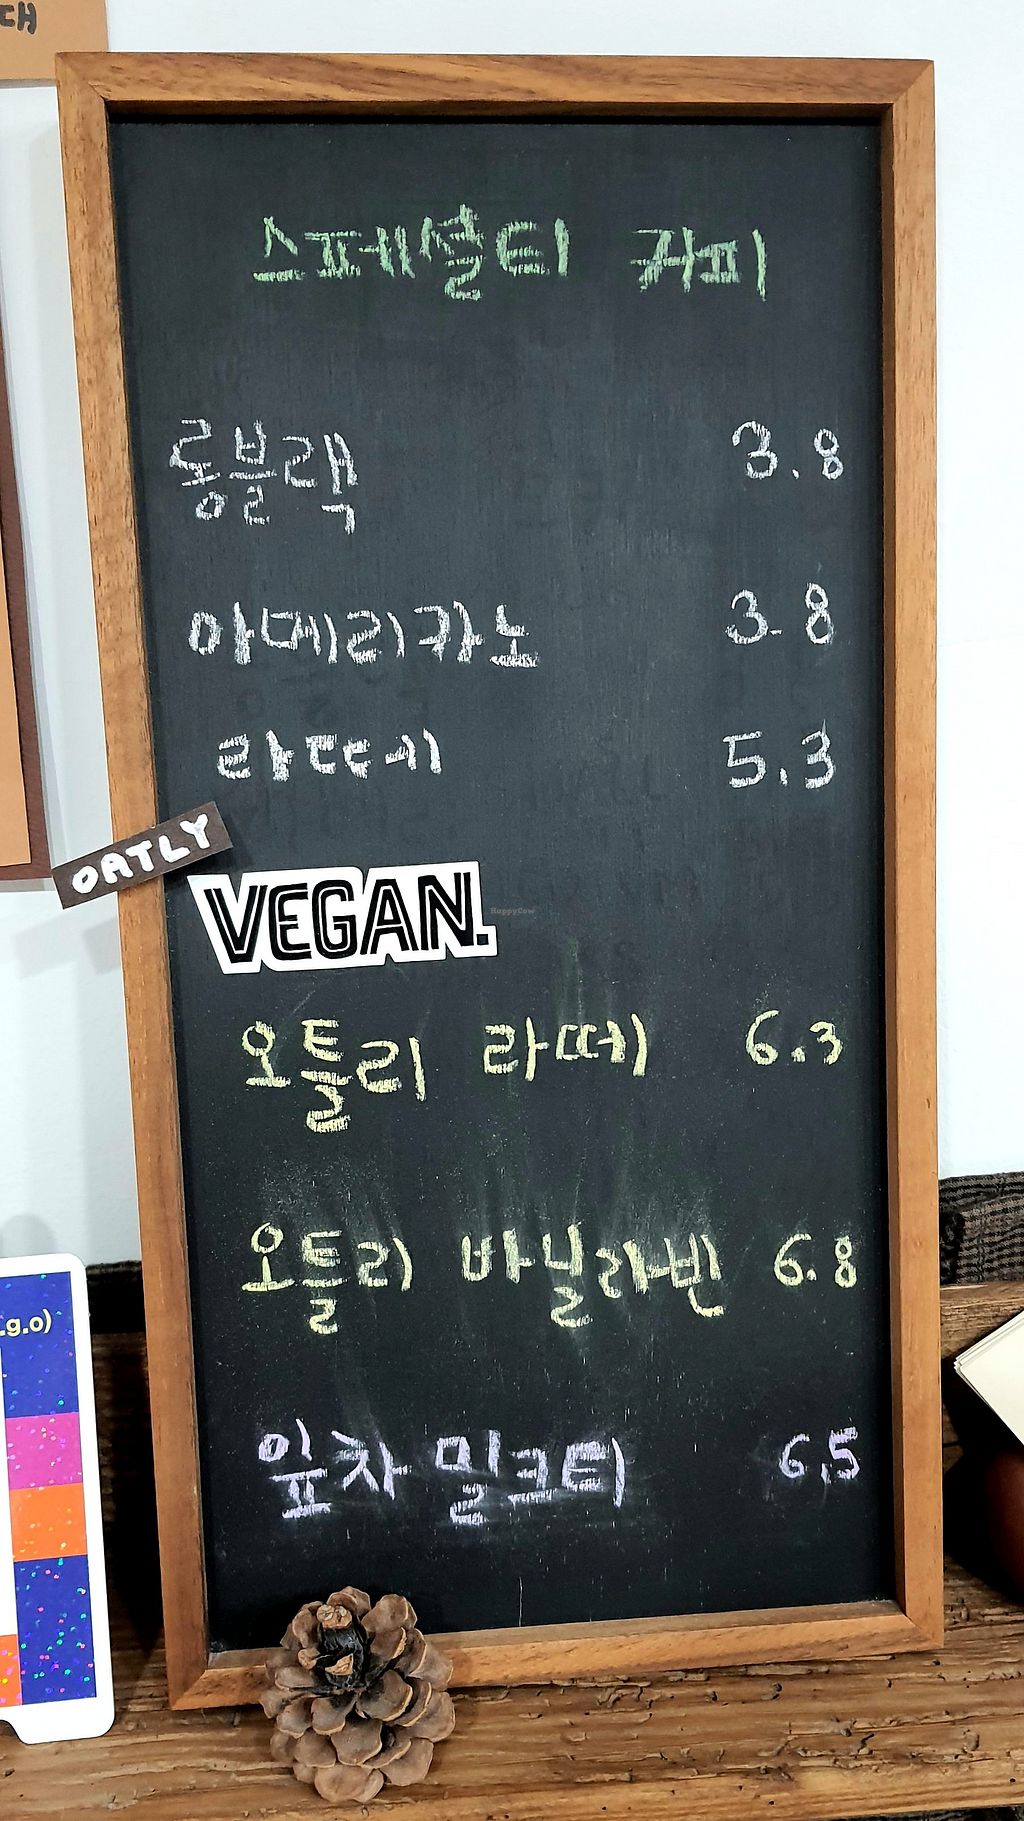 스페셜티 커피
롱블랙 3.8
아메리카노 3.8
라떼 5.3
OATLY
VEGAN.
HappyCow
오틀리 라떼 6.3
오틀리 바닐라빈 6.8
.g.o)
잎차 밀크티 6.5